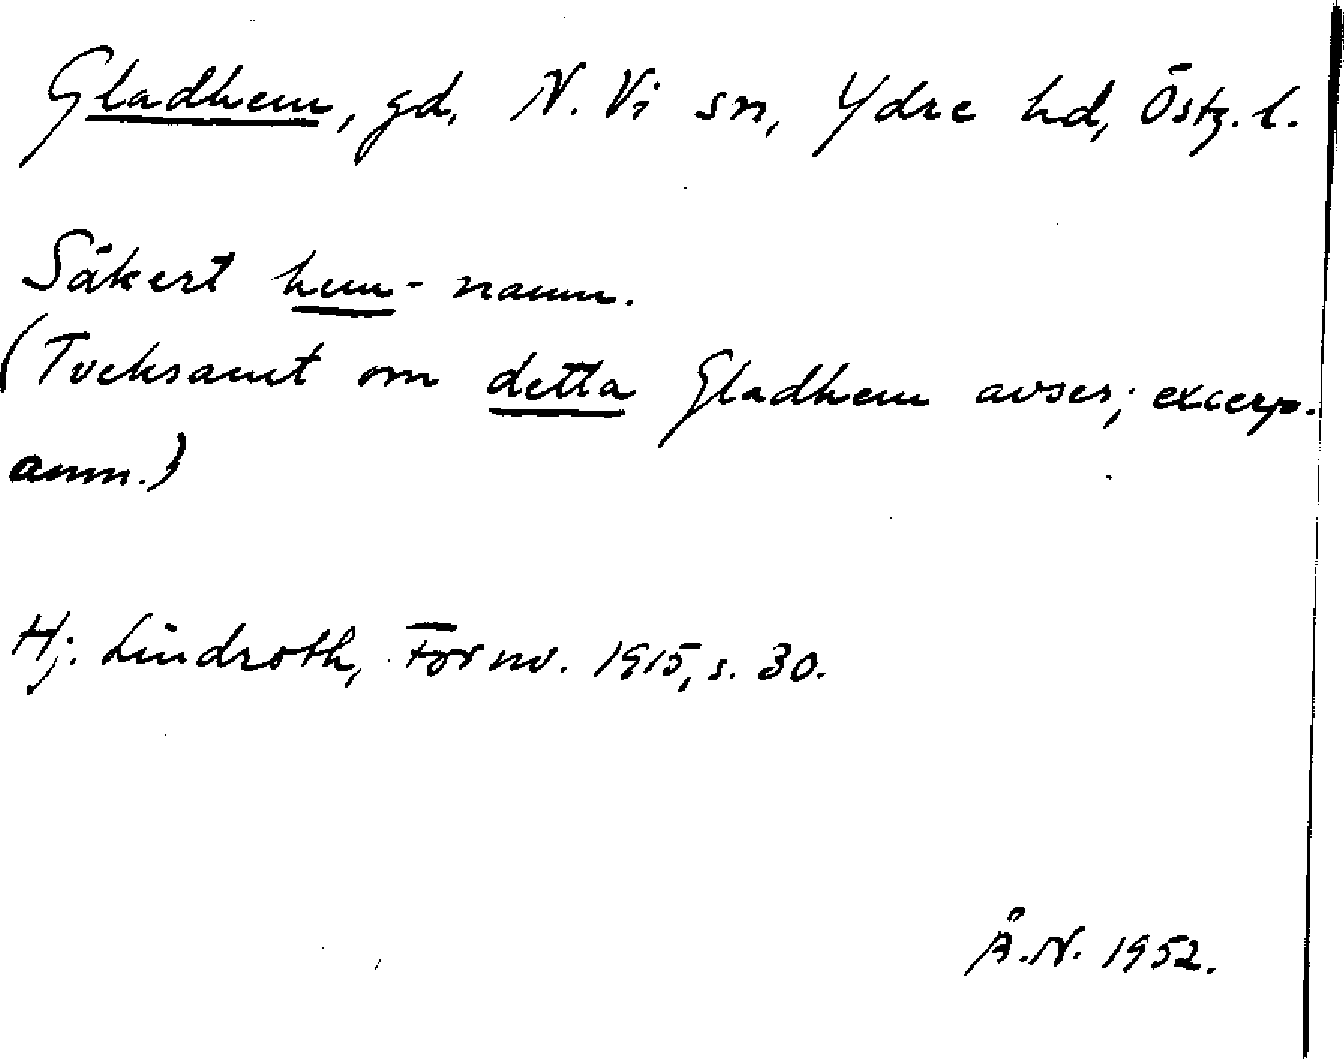 Gladhem, gd, N. Vi sn, Ydre hd, Östg. l.
Säkert hem- namn.
(Tveksamt om detta Gladhem avses; excerp.
anm.)
Hj. Lindroth, Fornv. 1915, s. 30.
Å.N. 1952.